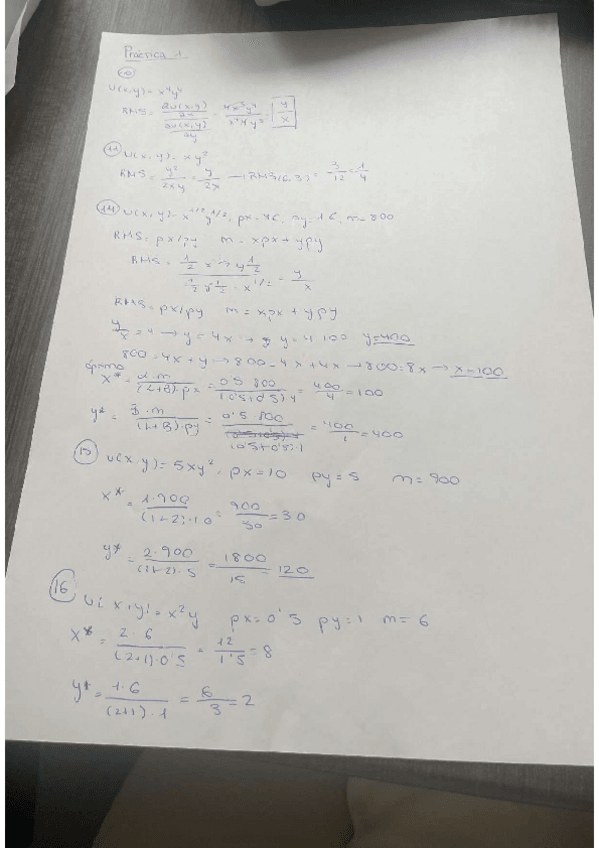 Práctica 1
10
U(x,y) = x⁴y⁴
RMS = ∂u(x,y)/∂x / ∂u(x,y)/∂y = 4x³y⁴ / x⁴4y³ = y/x
11 U(x,y) = xy²
RMS = y²/2xy = y/2x → RMS(6,3) = 3/12 = 1/4
14 U(x,y) = x^1/2 y^1/2, px = 4€, py = 1€, m = 800
RMS = px/py m = xpx + ypy
= y/x
RMS = px/py m = xpx + ypy
y/x = 4 → y = 4x y = 4·100 y = 400
800 = 4x + y → 800 = 4x + 4x → 800 = 8x → x = 100
x* = α·m / (α+B)·px = 0'5·800 / (0'5+0'5)·4 = 400/4 = 100
y* = B·m / (α+B)·py = 0'5·800 / (0'5+0'5)·1 = 400/1 = 400
15 U(x,y) = 5xy², px = 10 py = 5 m = 900
x* = 1·900 / (1+2)·10 = 900/30 = 30
y* = 2·900 / (1+2)·5 = 1800/15 = 120
16 U(x,y) = x²y px = 0'5 py = 1 m = 6
x* = 2·6 / (2+1)·0'5 = 12/1'5 = 8
y* = 1·6 / (2+1)·1 = 6/3 = 2